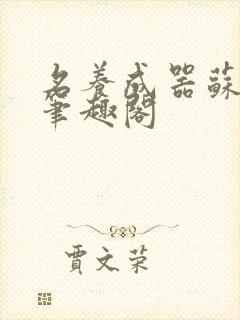 名養成器蘇
筆趣閣
賈文榮